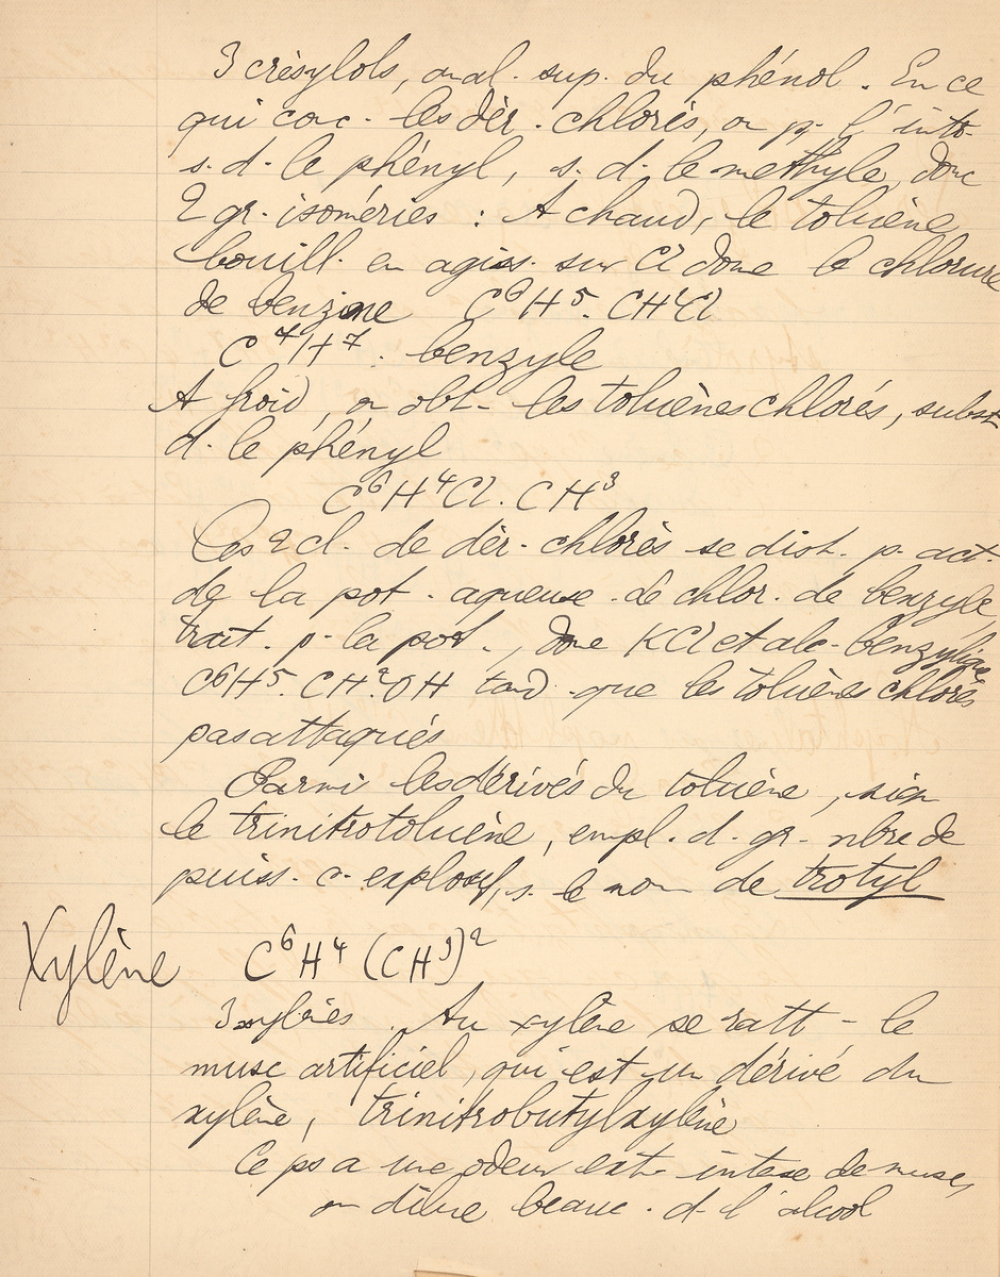 3 crésylols, anal. sup. du phénol. En ce
qui conc. les dér. chlorés, on p. l'intr.
s. d. le phényl, s. d. le méthyle, donc
2 gr. isoméries : A chaud, le toluène
bouill. en agiss. sur Cl donne le chlorure
de benzine C⁶H⁵.CH²Cl
C⁷H⁷. benzyle
A froid, on obt. les toluènes chlorés, subst
d. le phényl
C⁶H⁴Cl.CH³
Ces 2 cl. de dér. chlorés se dist. p. act.
de la pot. aqueuse. Le chlor. de benzyle,
trait. p. la pot., donne KCl et alc. benzylique
C⁶H⁵.CH².OH tand. que les toluènes chlorés
pas attaqués
Parmi les dérivés du toluène, sign
le trinitrotoluène, empl. d. gr. nbre de
puiss. c. explosif, s. le nom de trotyl
Xylène C⁶H⁴(CH³)²
3 xylènes. Au xylène se ratt. le
musc artificiel, qui est un dérivé du
xylène, trinitrobutylxylène
Ce ps a une odeur ext. intense de musc,
on dilue beauc. d. l'alcool